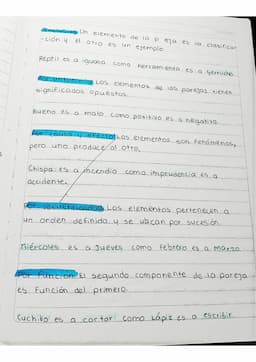 Un elemento de la p eja es la clasifica-
-ción y el otro es un ejemplo.
Reptil es a iguana como herramienta es a
Los elementos de las parejas tienen
significados opuestos.
Bueno es a malo como positivo es a negativo.
Por causa y efecto Los elementos son fenómenos,
pero uno produce al otro.
Chispa es a incendio como imprudencia es a
accidente.
Los elementos pertenecen a
un orden definido y se ubican por sucesión.
Miércoles es a Jueves como febrero es a marzo
Por Función El segundo componente de la pareja
es Función del primero.
Cuchillo es a cortar como Lápiz es a escribir